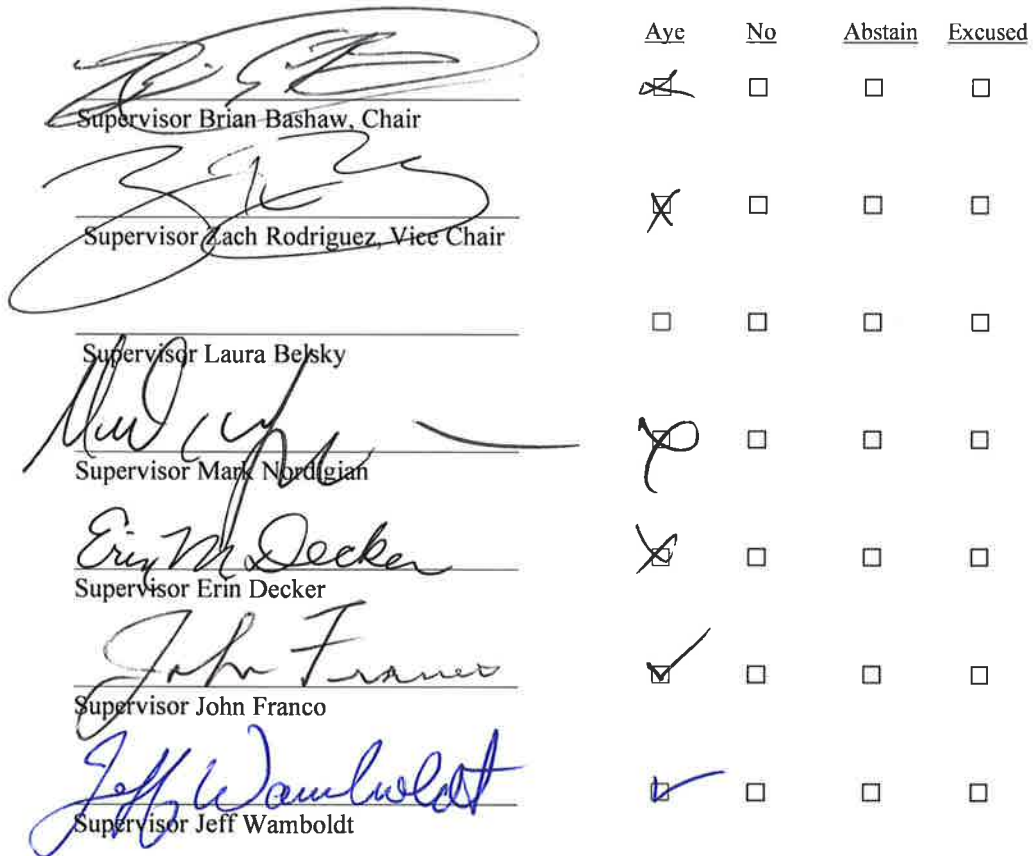 Aye No Abstain Excused
Supervisor Brian Bashaw, Chair
Supervisor Zach Rodriguez, Vice Chair
Supervisor Laura Belsky
Supervisor Mark Nordigian
Erin M Decker
Supervisor Erin Decker
John Franco
Supervisor John Franco
Jeff Wamboldt
Supervisor Jeff Wamboldt